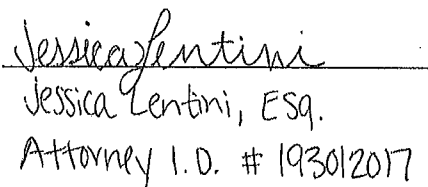 Jessica Lentini
Jessica Lentini, Esq.
Attorney I.D. # 193012017